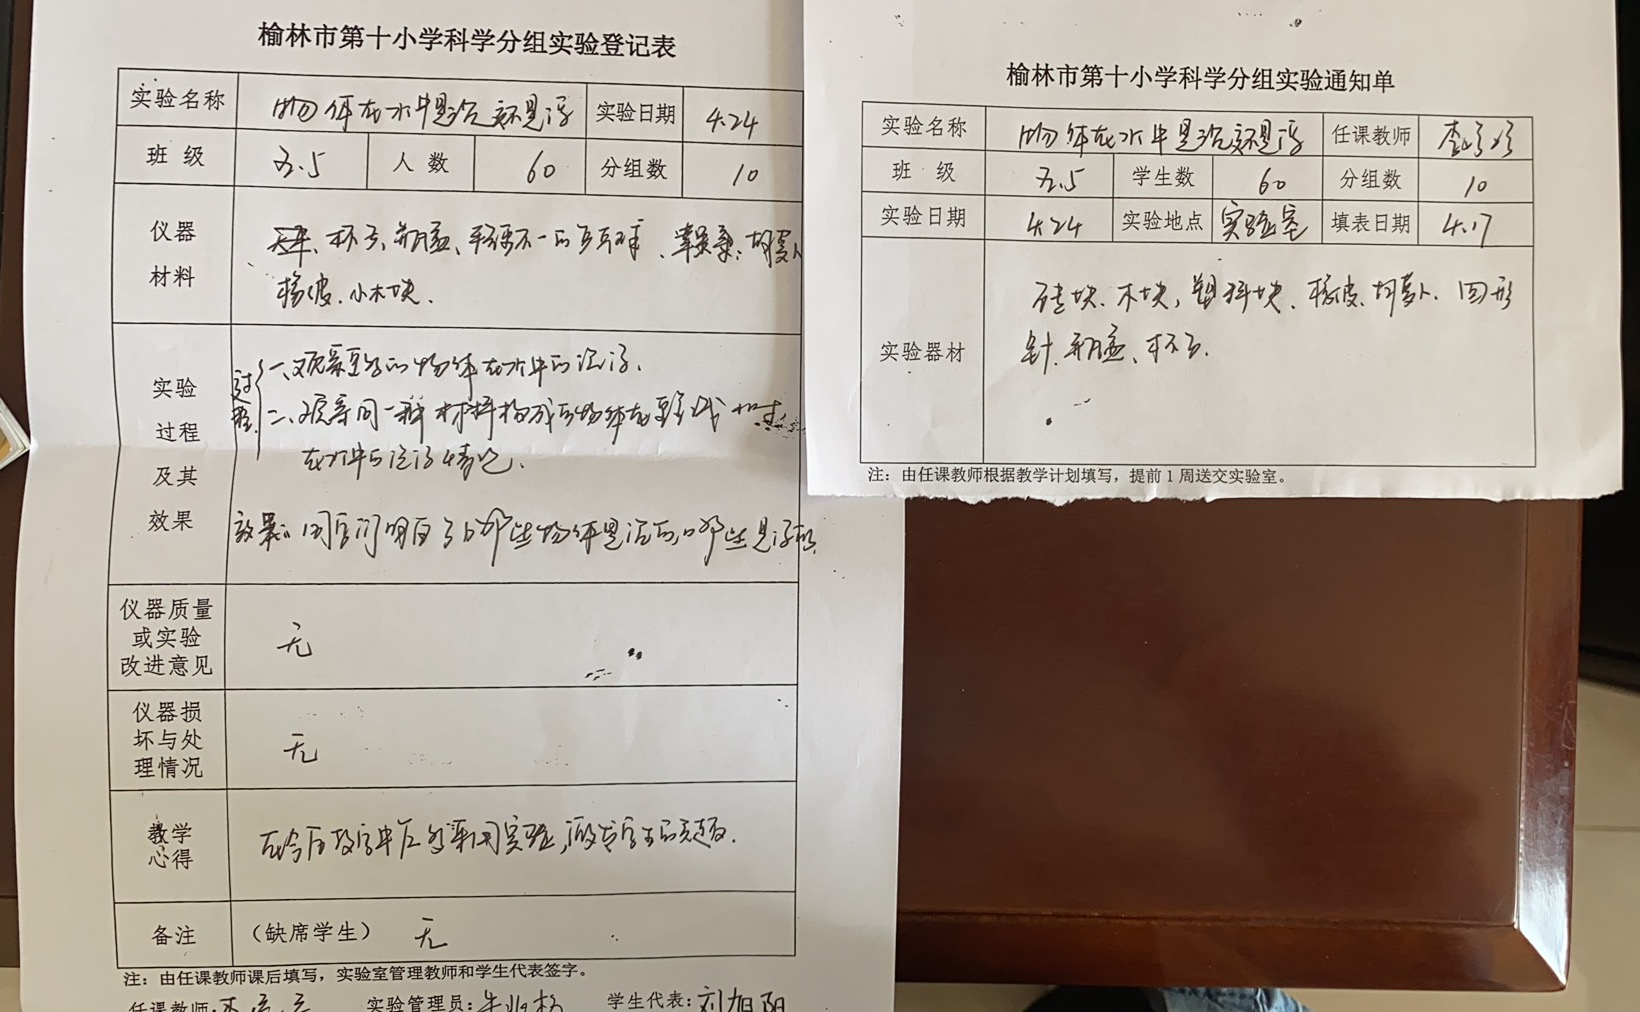 榆林市第十小学科学分组实验登记表
实验名称 物体在水中是沉还是浮 实验日期 4.24
班级 五.5 人数 60 分组数 10
仪器
材料
杯子、
橡皮、小木块.
实验
过程
及其
效果
过程
一、观察的物体在水中的沉浮.
二、观察同一种材料构成的物体在
在水中的沉浮情况.
效果: 同学们明白了哪些物体是沉的,哪些是浮的.
仪器质量
或实验
改进意见
无
仪器损
坏与处
理情况
无
教学
心得
在今后教学中应多采用实验,
备注 (缺席学生) 无
注:由任课教师课后填写,实验室管理教师和学生代表签字。
任课教师: 实验管理员: 学生代表:刘旭阳
榆林市第十小学科学分组实验通知单
实验名称 物体在水中是沉还是浮 任课教师
班级 五.5 学生数 60 分组数 10
实验日期 4.24 实验地点 实验室 填表日期 4.17
实验器材
木块、塑料块、橡皮、胡萝卜、回形
针、杯子.
注:由任课教师根据教学计划填写,提前1周送交实验室。